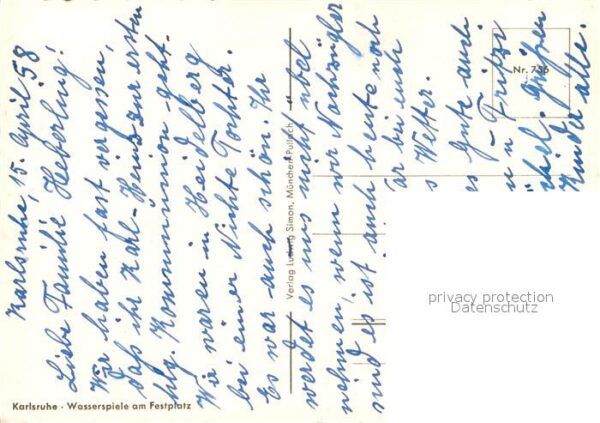 Karlsruhe, 15. April 58
Liebe Familie Heberling!
Wir haben fast vergessen,
daß ihr Karl-Heinz zur ersten
hlg. Kommunion geht.
Wir waren in Heidelberg
bei einer Nichte Tochter.
Es war auch schön. Ihr
werdet es uns nicht übel
nehmen, wenn wir Nachzügler
und es ist auch heute noch
ar bei euch
s Wetter.
es Gute auch
Fritz
u
viel. Grüßen
Kinder alle.
Nr. 736
Verlag Ludwig Simon, München-Pullach
Karlsruhe - Wasserspiele am Festplatz
privacy protection
Datenschutz